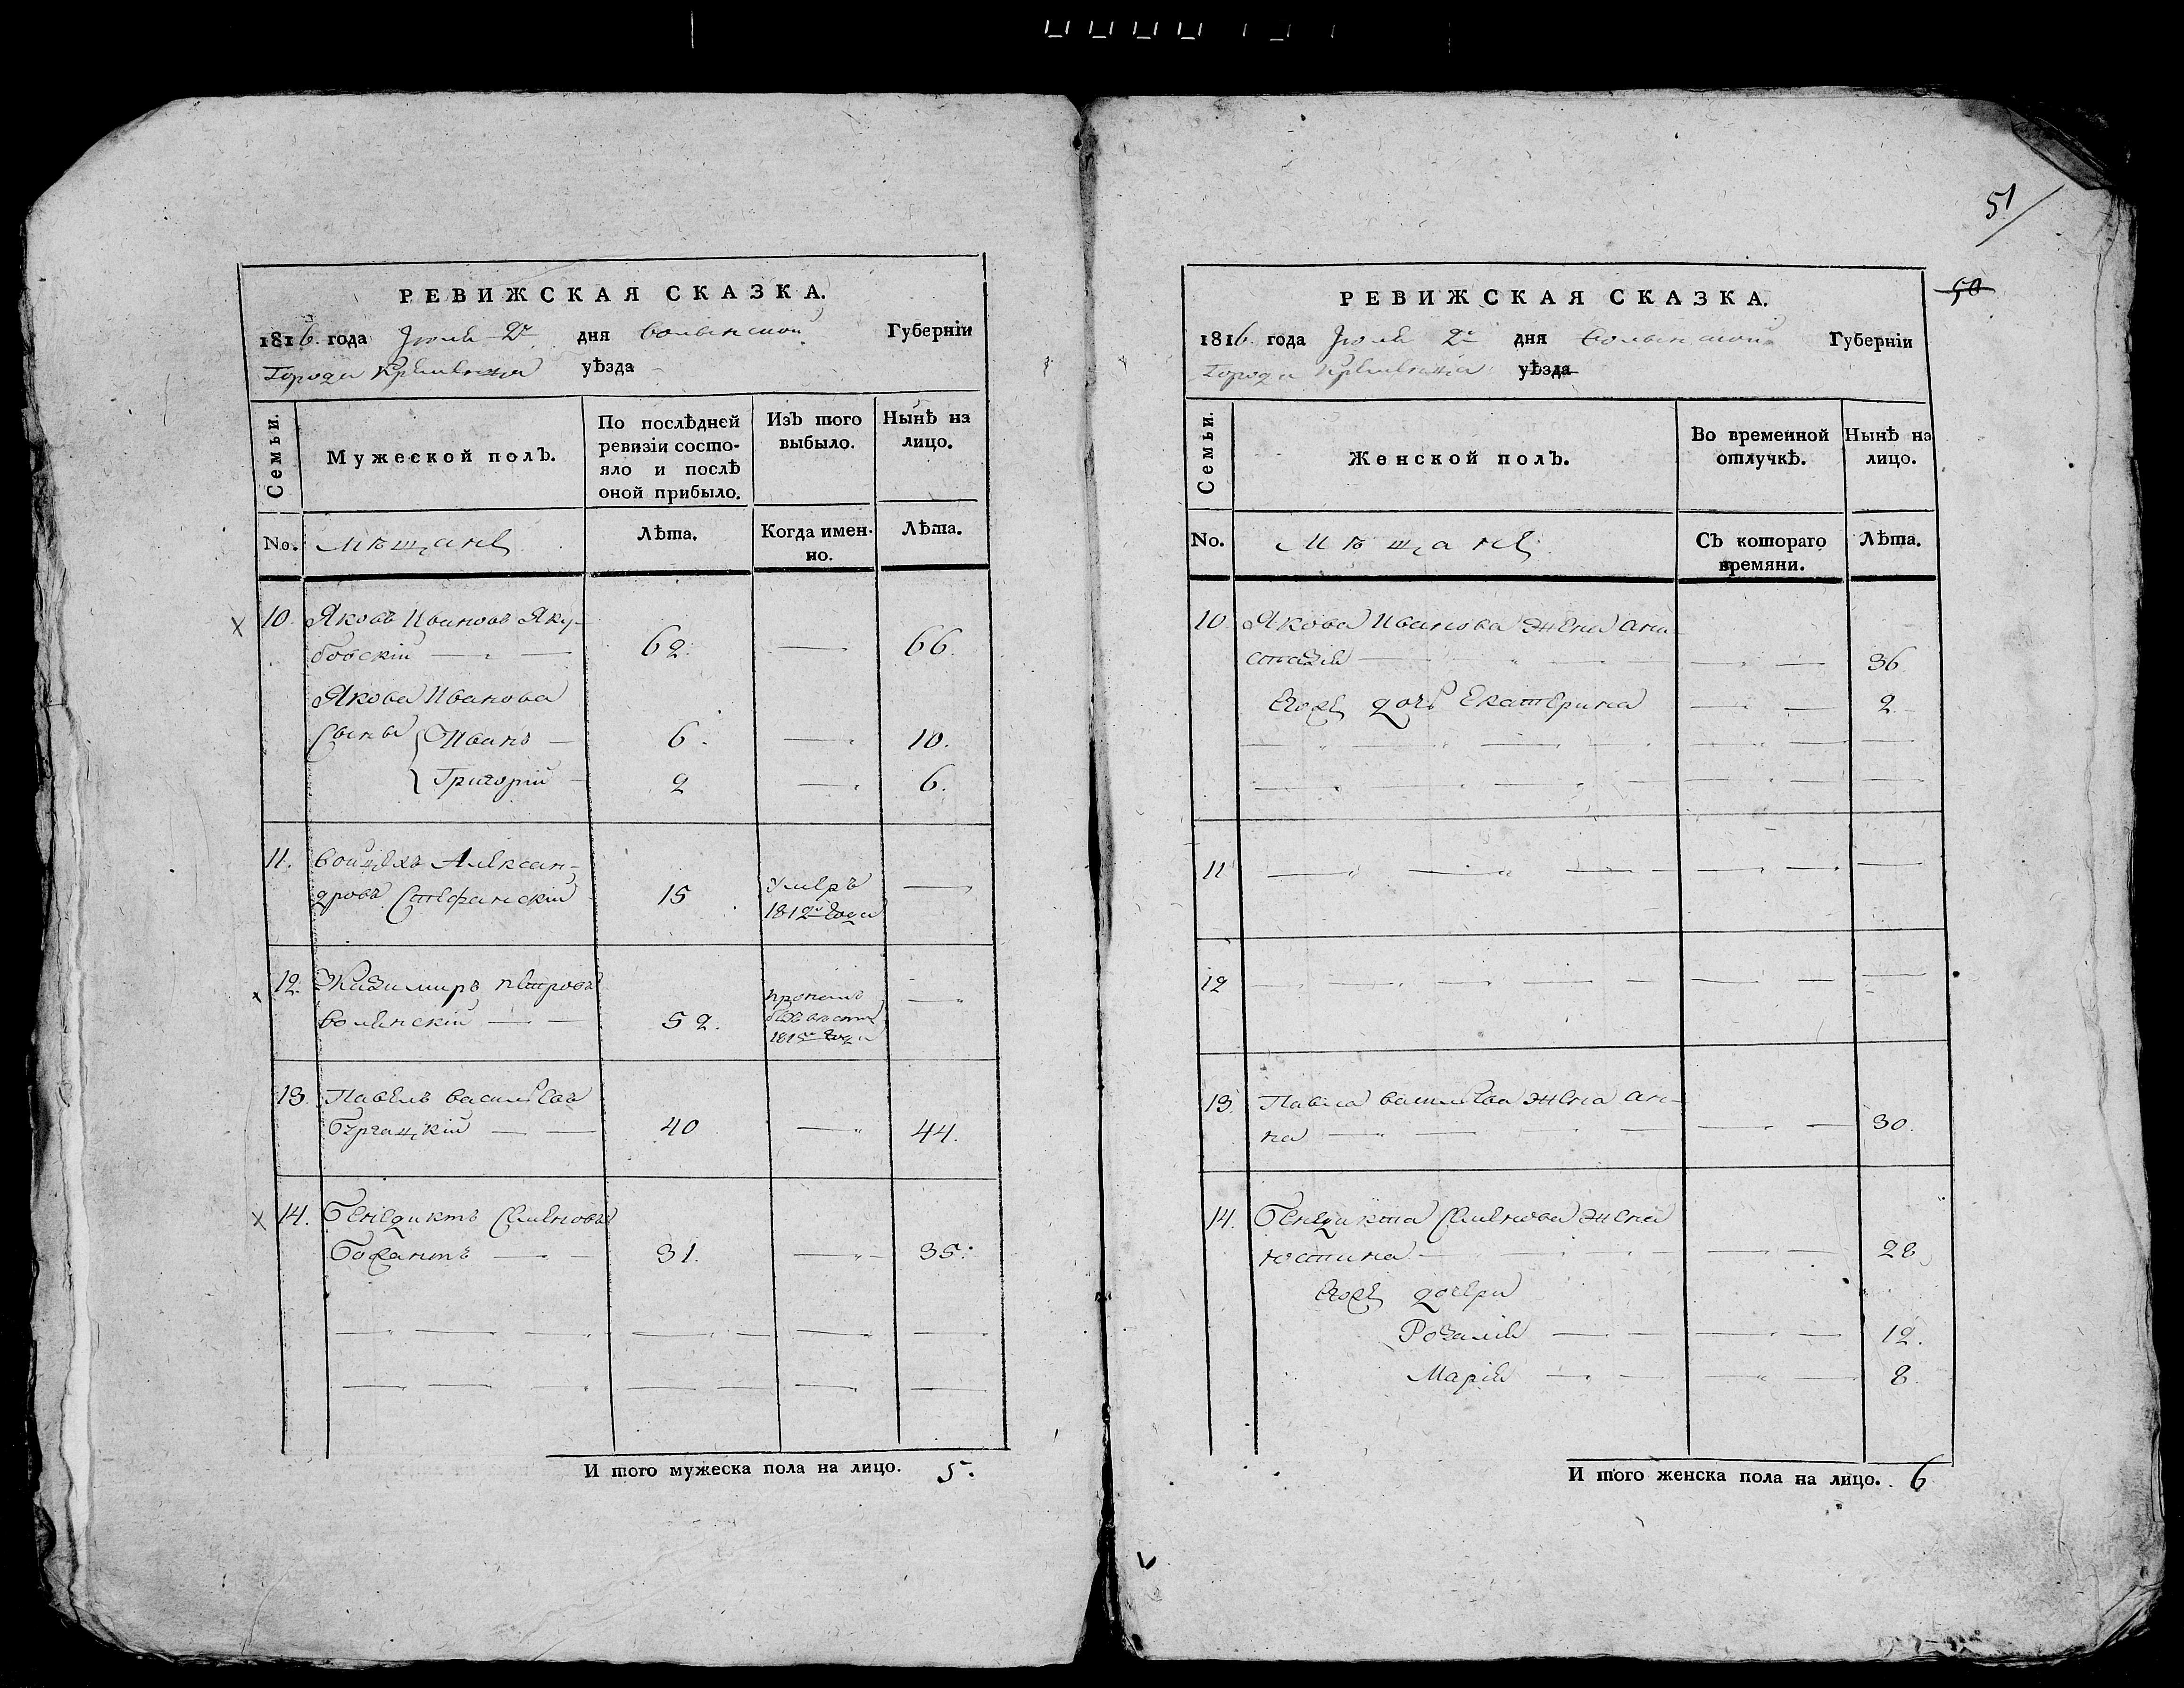 51
50
РЕВИЖСКАЯ СКАЗКА.
1816. года Іюля 2го дня Волынской Губерніи
Города Кременца уѣзда
Семьи.
Мужеской полЪ.
По послѣдней ревизіи состо-
яло и послѣ
оной прибыло.
ИзЪ того выбыло.
НынѣЪ на лицо.
No.
Мѣщане
Лѣта.
Когда имен-
но.
Лѣта.
10. Яковъ Ивановъ Яку-
бовскій 62. 66.
Якова Иванова
Сыны Иванъ 6. 10.
Григорій 2 6.
11. Войцехъ Алексан-
дровъ Стефанскій 15 умеръ
1812го Года
12. Казимиръ Петровъ
Воленскій 52. пропалъ
безъ вѣсти
1815го Года
13. Павелъ Васильевъ
40 44.
14. Бенедиктъ Семеновъ
31. 35.
И того мужеска пола на лицо. 5.
РЕВИЖСКАЯ СКАЗКА.
1816. года Іюля 2го дня Волынской Губерніи
Города Кременца уѣзда
Семьи.
Женской полЪ.
Во временной
отлучкѣ.
Нынѣ на
лицо.
No.
Мѣщане
СЪ котораго
времяни.
Лѣта.
10. Якова Иванова жена Ана-
стазія 36
Егоже дочь Екатерина 2.
11
12
13. Павла Васильева жена Ан-
на 30.
14. Бенедикта Семенова жена
Юстина 28
Егоже дочери
Розалія 12.
Марія 8
И того женска пола на лицо. 6